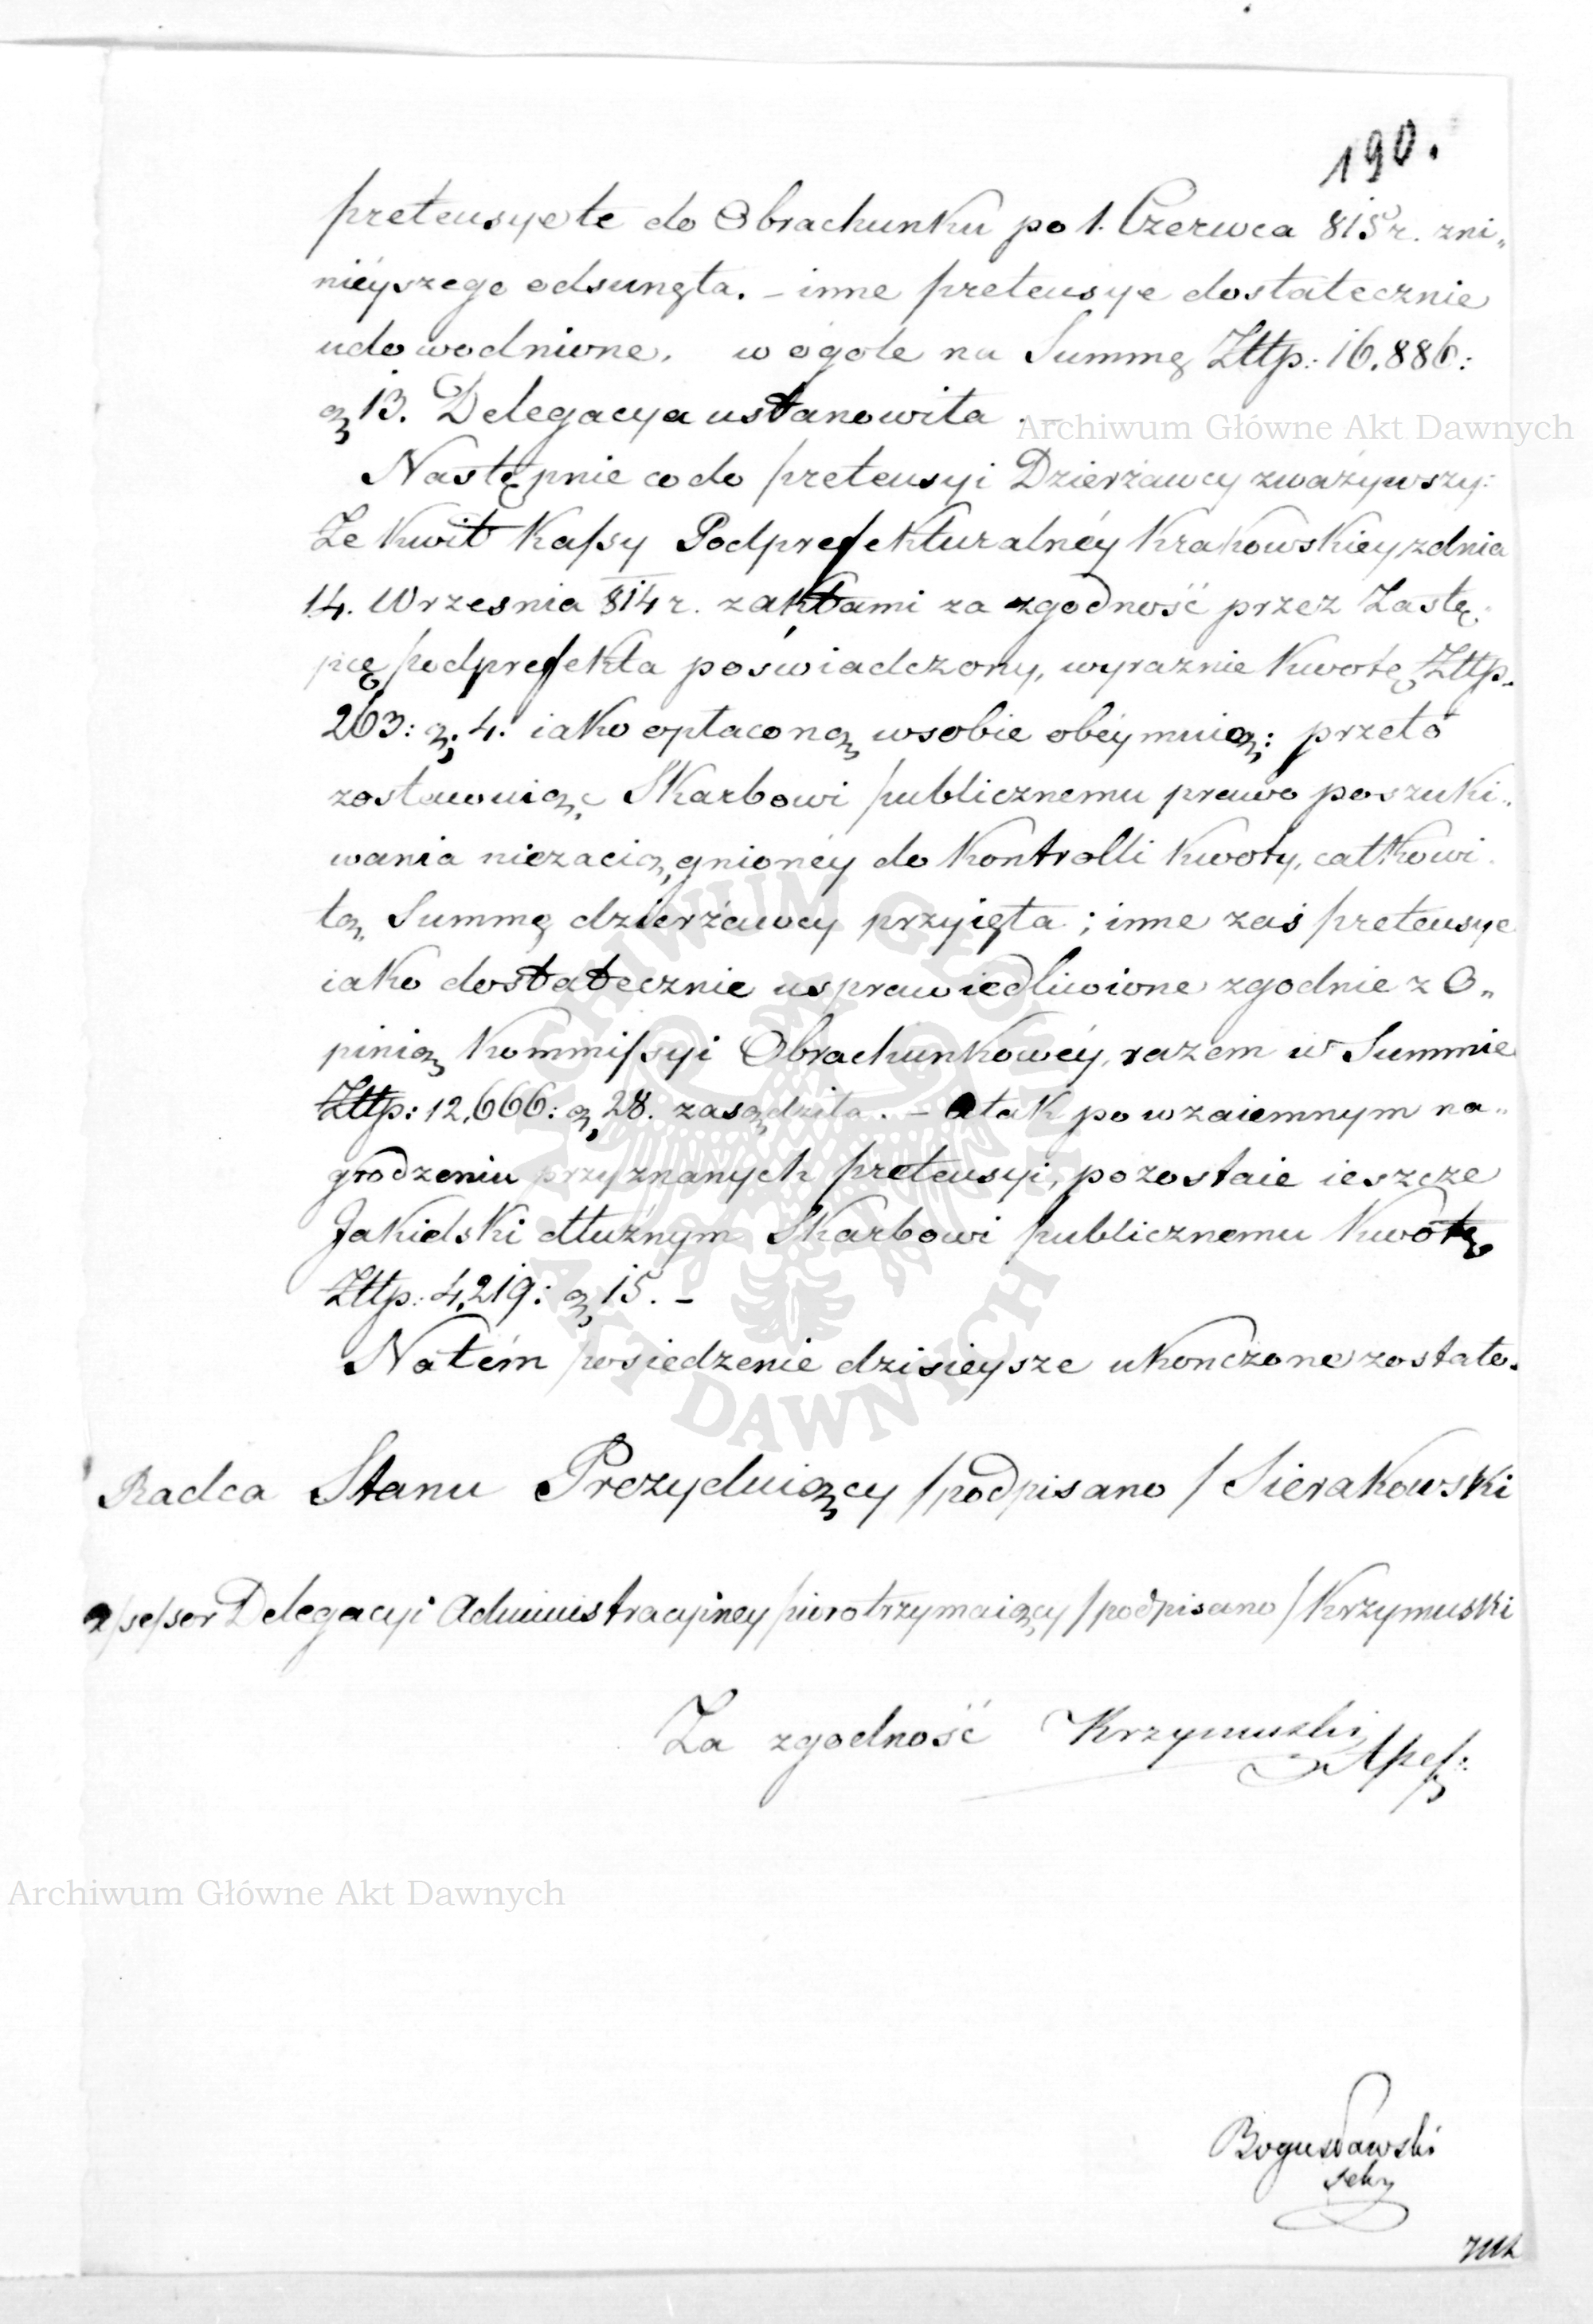 190.
pretensye te do Obrachunku po 1. Czerwca 815 r. zni„
nieyszego odsunęła. – inne pretensye dostatecznie
udowodnione, w ogóle na Summę Złłp: 16.886:
g 13. Delegacya ustanowiła. –
Archiwum Główne Akt Dawnych
Następnie co do pretensyi Dzierżawcy zważywszy:
Że kwit Kassy Podprefekturalnéy Krakowskiey z dnia
14. Września 814 r. z aktami za zgodność przez Zastę„
pcę podprefekta poświadczony, wyraznie kwotę Złłp.
263: g: 4: iako opłaconą w sobie obéymuią: przeto
zostawuiąc Skarbowi publicznemu prawo poszuki„
wania niezaciągnionéy do kontrolli kwoty, całkowi„
tą Summę dzierżawcy przyięła; inne zaś pretensye
iako dostatecznie usprawiedliwione zgodnie z O„
pinią Kommissyi Obrachunkowéy, razem w Summie
Złłp: 12,666: g 28. zasądziła. – a tak po wzaiemnym na„
grodzeniu przyznanych pretensyi, pozostaie ieszcze
Jakielski dłużnym Skarbowi publicznemu kwotę
Złłp: 4,219: g 15. –
Na tém posiedzenie dzisieysze ukonczone zostało.
ARCHIWUM GŁÓWNE AKT DAWNYCH
Radca Stanu Prezyduiący /podpisano/ Sierakowski
Assessor Delegacyi Administracyiney pioro trzymaiący /podpisano/ Krzymuski
Za zgodność Krzymuski
Assess:
Archiwum Główne Akt Dawnych
Bogusławski
Sekr